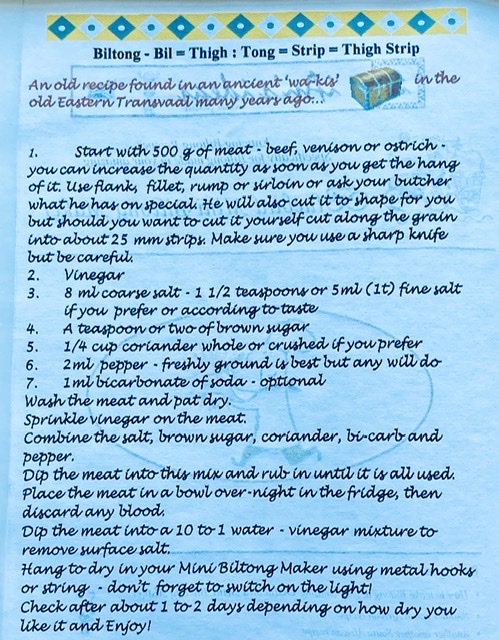 Biltong - Bil = Thigh : Tong = Strip = Thigh Strip
An old recipe found in an ancient 'wa-kis' in the
old Eastern Transvaal many years ago...
1. Start with 500 g of meat - beef, venison or ostrich -
you can increase the quantity as soon as you get the hang
of it. Use flank, fillet, rump or sirloin or ask your butcher
what he has on special. He will also cut it to shape for you
but should you want to cut it yourself cut along the grain
into about 25 mm strips. Make sure you use a sharp knife
but be careful.
2. Vinegar
3. 8 ml coarse salt - 1 1/2 teaspoons or 5ml (1t) fine salt
if you prefer or according to taste
4. A teaspoon or two of brown sugar
5. 1/4 cup coriander whole or crushed if you prefer
6. 2ml pepper - freshly ground is best but any will do
7. 1ml bicarbonate of soda - optional
Wash the meat and pat dry.
Sprinkle vinegar on the meat.
Combine the salt, brown sugar, coriander, bi-carb and
pepper.
Dip the meat into this mix and rub in until it is all used.
Place the meat in a bowl over-night in the fridge, then
discard any blood.
Dip the meat into a 10 to 1 water - vinegar mixture to
remove surface salt.
Hang to dry in your Mini Biltong Maker using metal hooks
or string - don't forget to switch on the light!
Check after about 1 to 2 days depending on how dry you
like it and Enjoy!